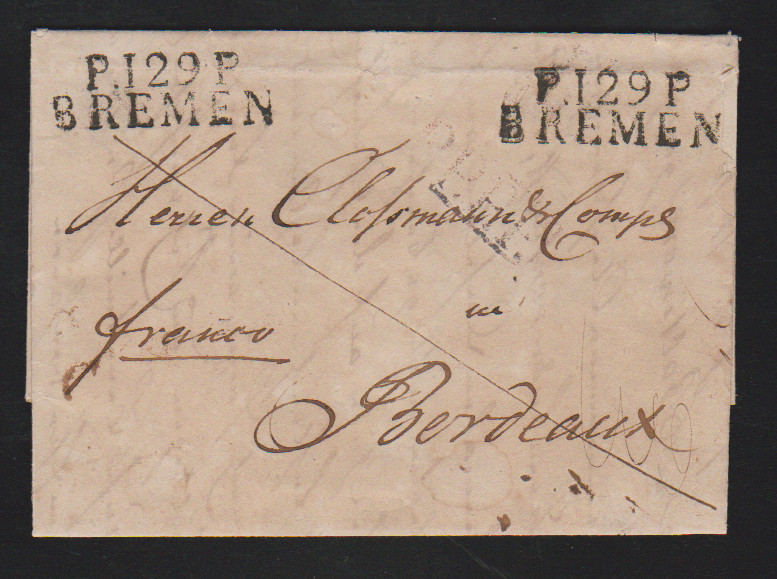 P.129P.
BREMEN
P.129P
BREMEN
Herren Clossmann & Comp
in
franco
Bordeaux